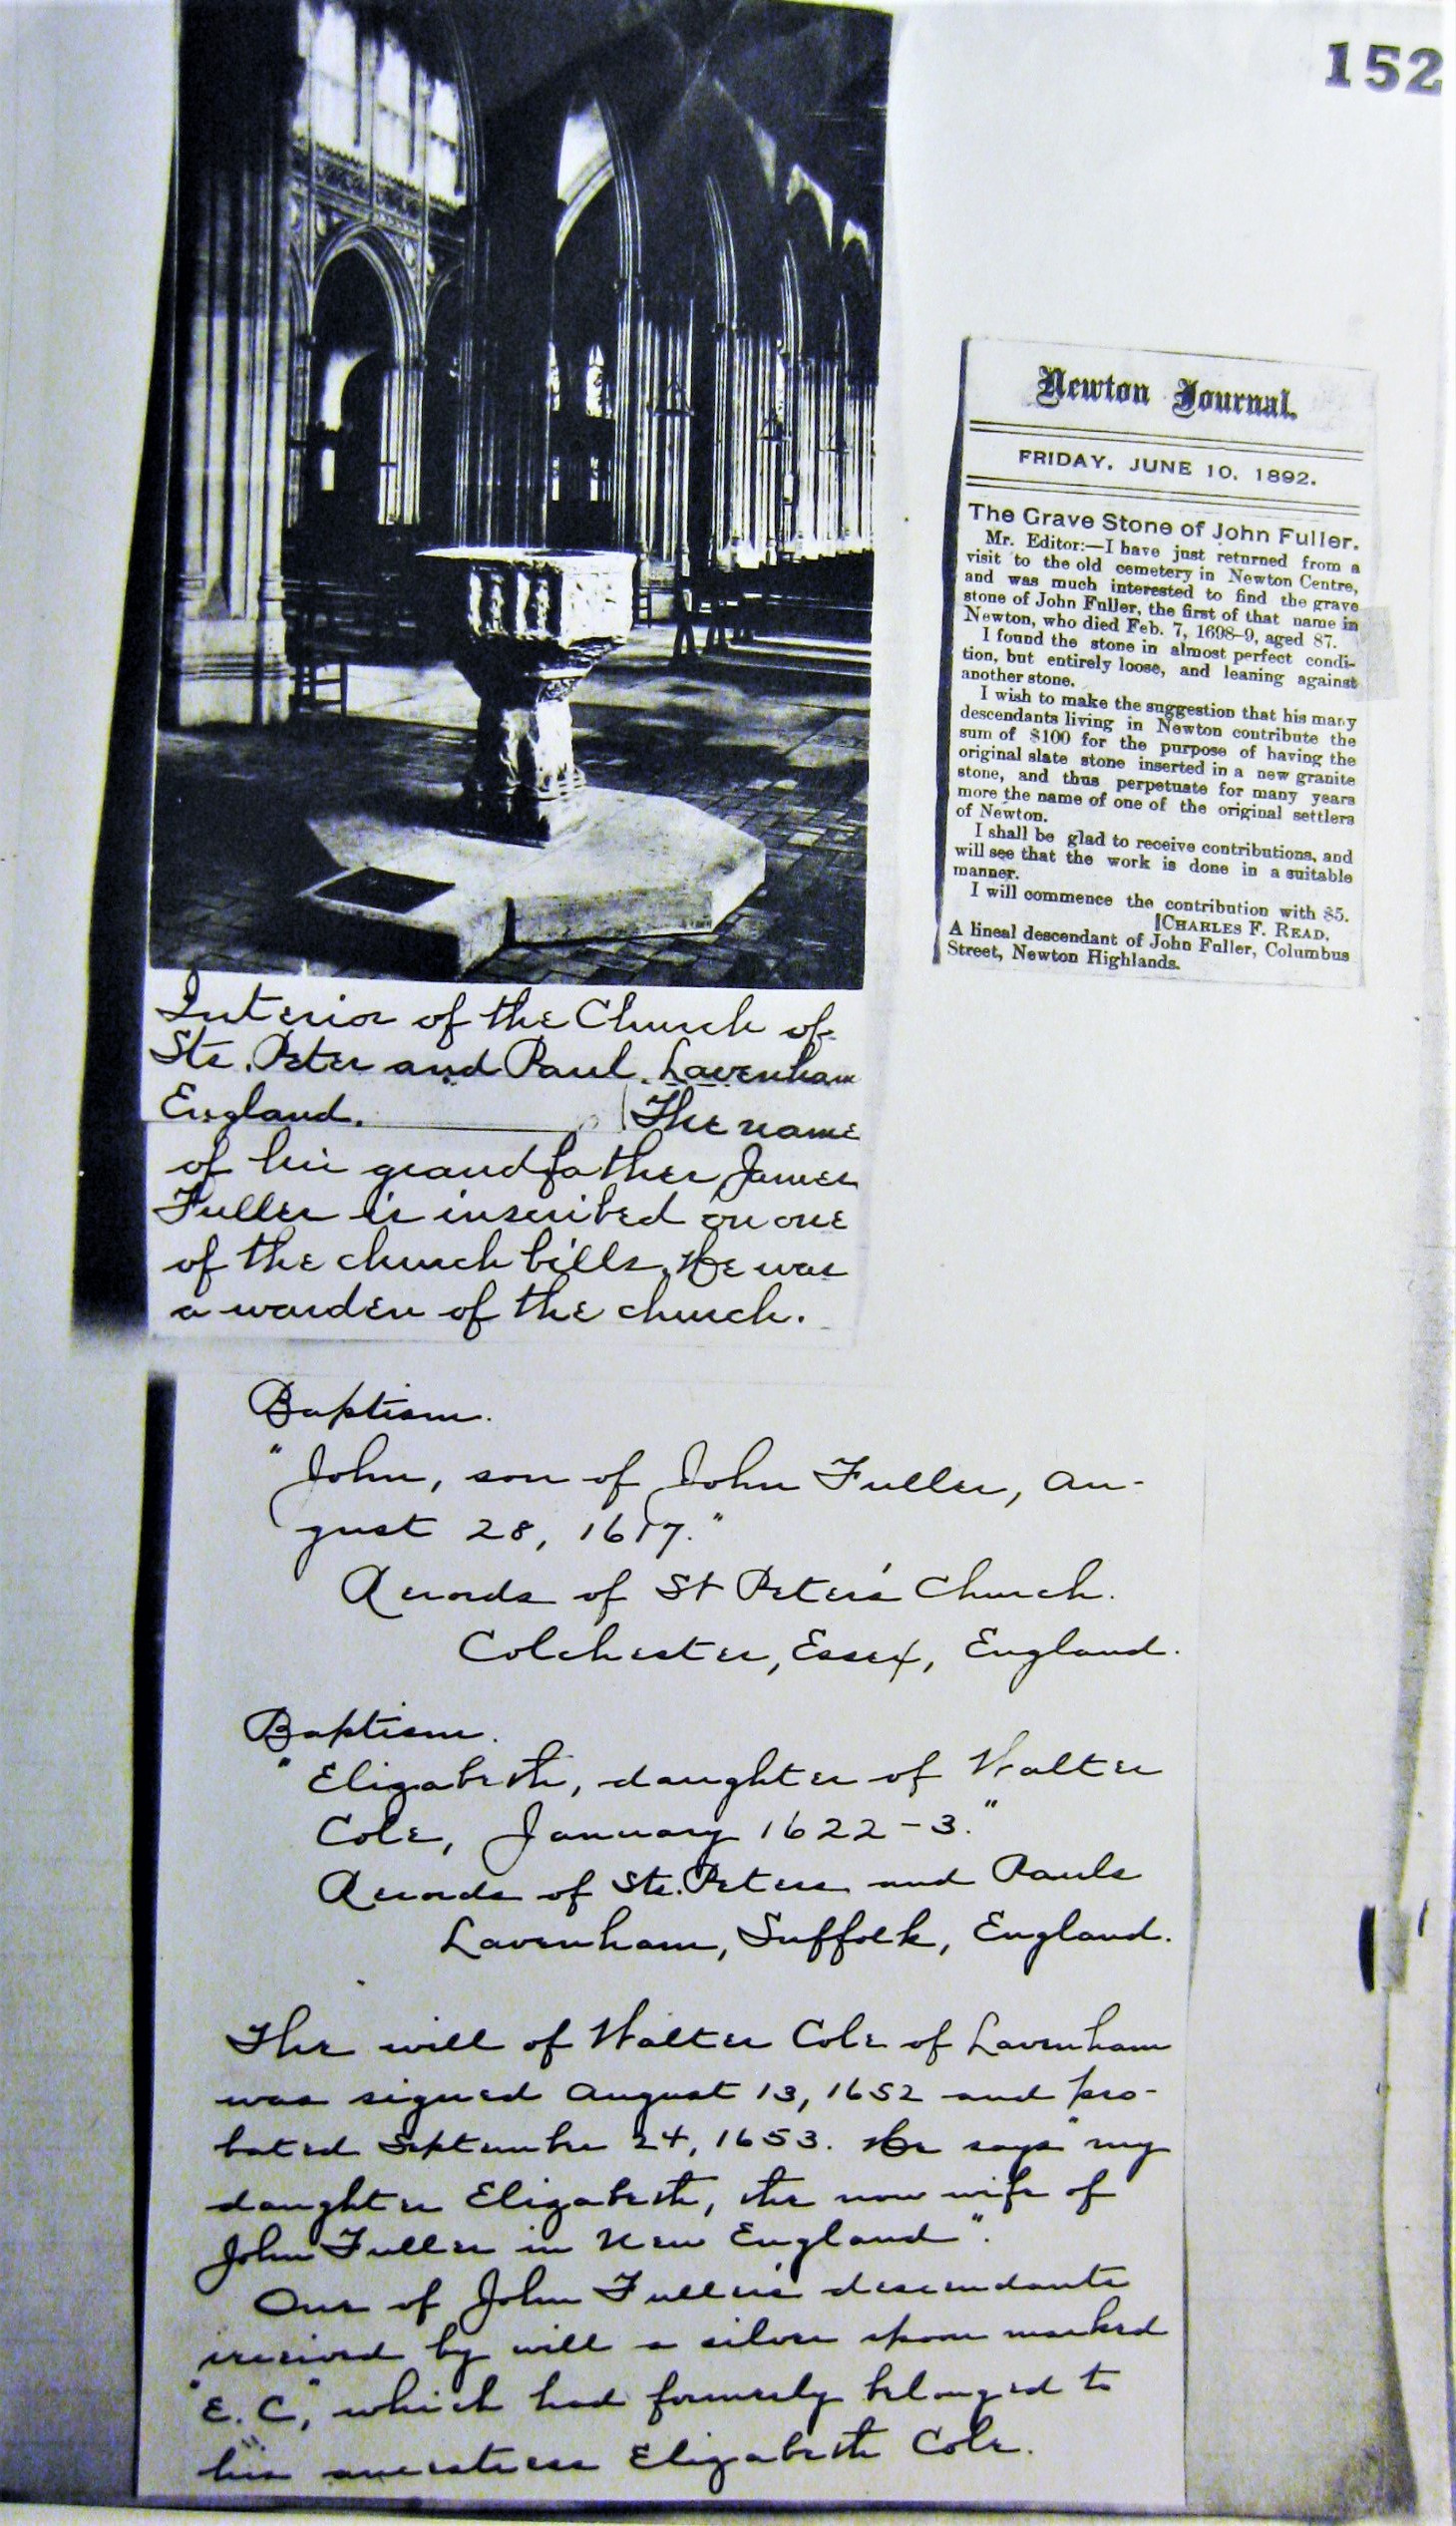 152
Newton Journal.
FRIDAY, JUNE 10, 1892.
The Grave Stone of John Fuller.
Mr. Editor:—I have just returned from a
visit to the old cemetery in Newton Centre,
and was much interested to find the grave
stone of John Fuller, the first of that name in
Newton, who died Feb. 7, 1698-9, aged 87.
I found the stone in almost perfect condi-
tion, but entirely loose, and leaning against
another stone.
I wish to make the suggestion that his many
descendants living in Newton contribute the
sum of $100 for the purpose of having the
original slate stone inserted in a new granite
stone, and thus perpetuate for many years
more the name of one of the original settlers
of Newton.
I shall be glad to receive contributions, and
will see that the work is done in a suitable
manner.
I will commence the contribution with $5.
CHARLES F. READ,
A lineal descendant of John Fuller, Columbus
Street, Newton Highlands.
Interior of the Church of
Sts. Peter and Paul, Lavenham
England. The name
of his grandfather James
Fuller is inscribed on one
of the church bells. He was
a warden of the church.
Baptism.
"John, son of John Fuller, Au-
gust 28, 1617."
Records of St Peter's Church.
Colchester, Essex, England.
Baptism.
"Elizabeth, daughter of Walter
Cole, January 1622-3."
Records of Sts. Peters and Pauls
Lavenham, Suffolk, England.
The will of Walter Cole of Lavenham
was signed August 13, 1652 and pro-
bated September 24, 1653. He says "my
daughter Elizabeth, the now wife of
John Fuller in New England".
One of John Fuller's descendants
received by will a silver spoon marked
"E. C", which had formerly belonged to
his ancestress Elizabeth Cole.